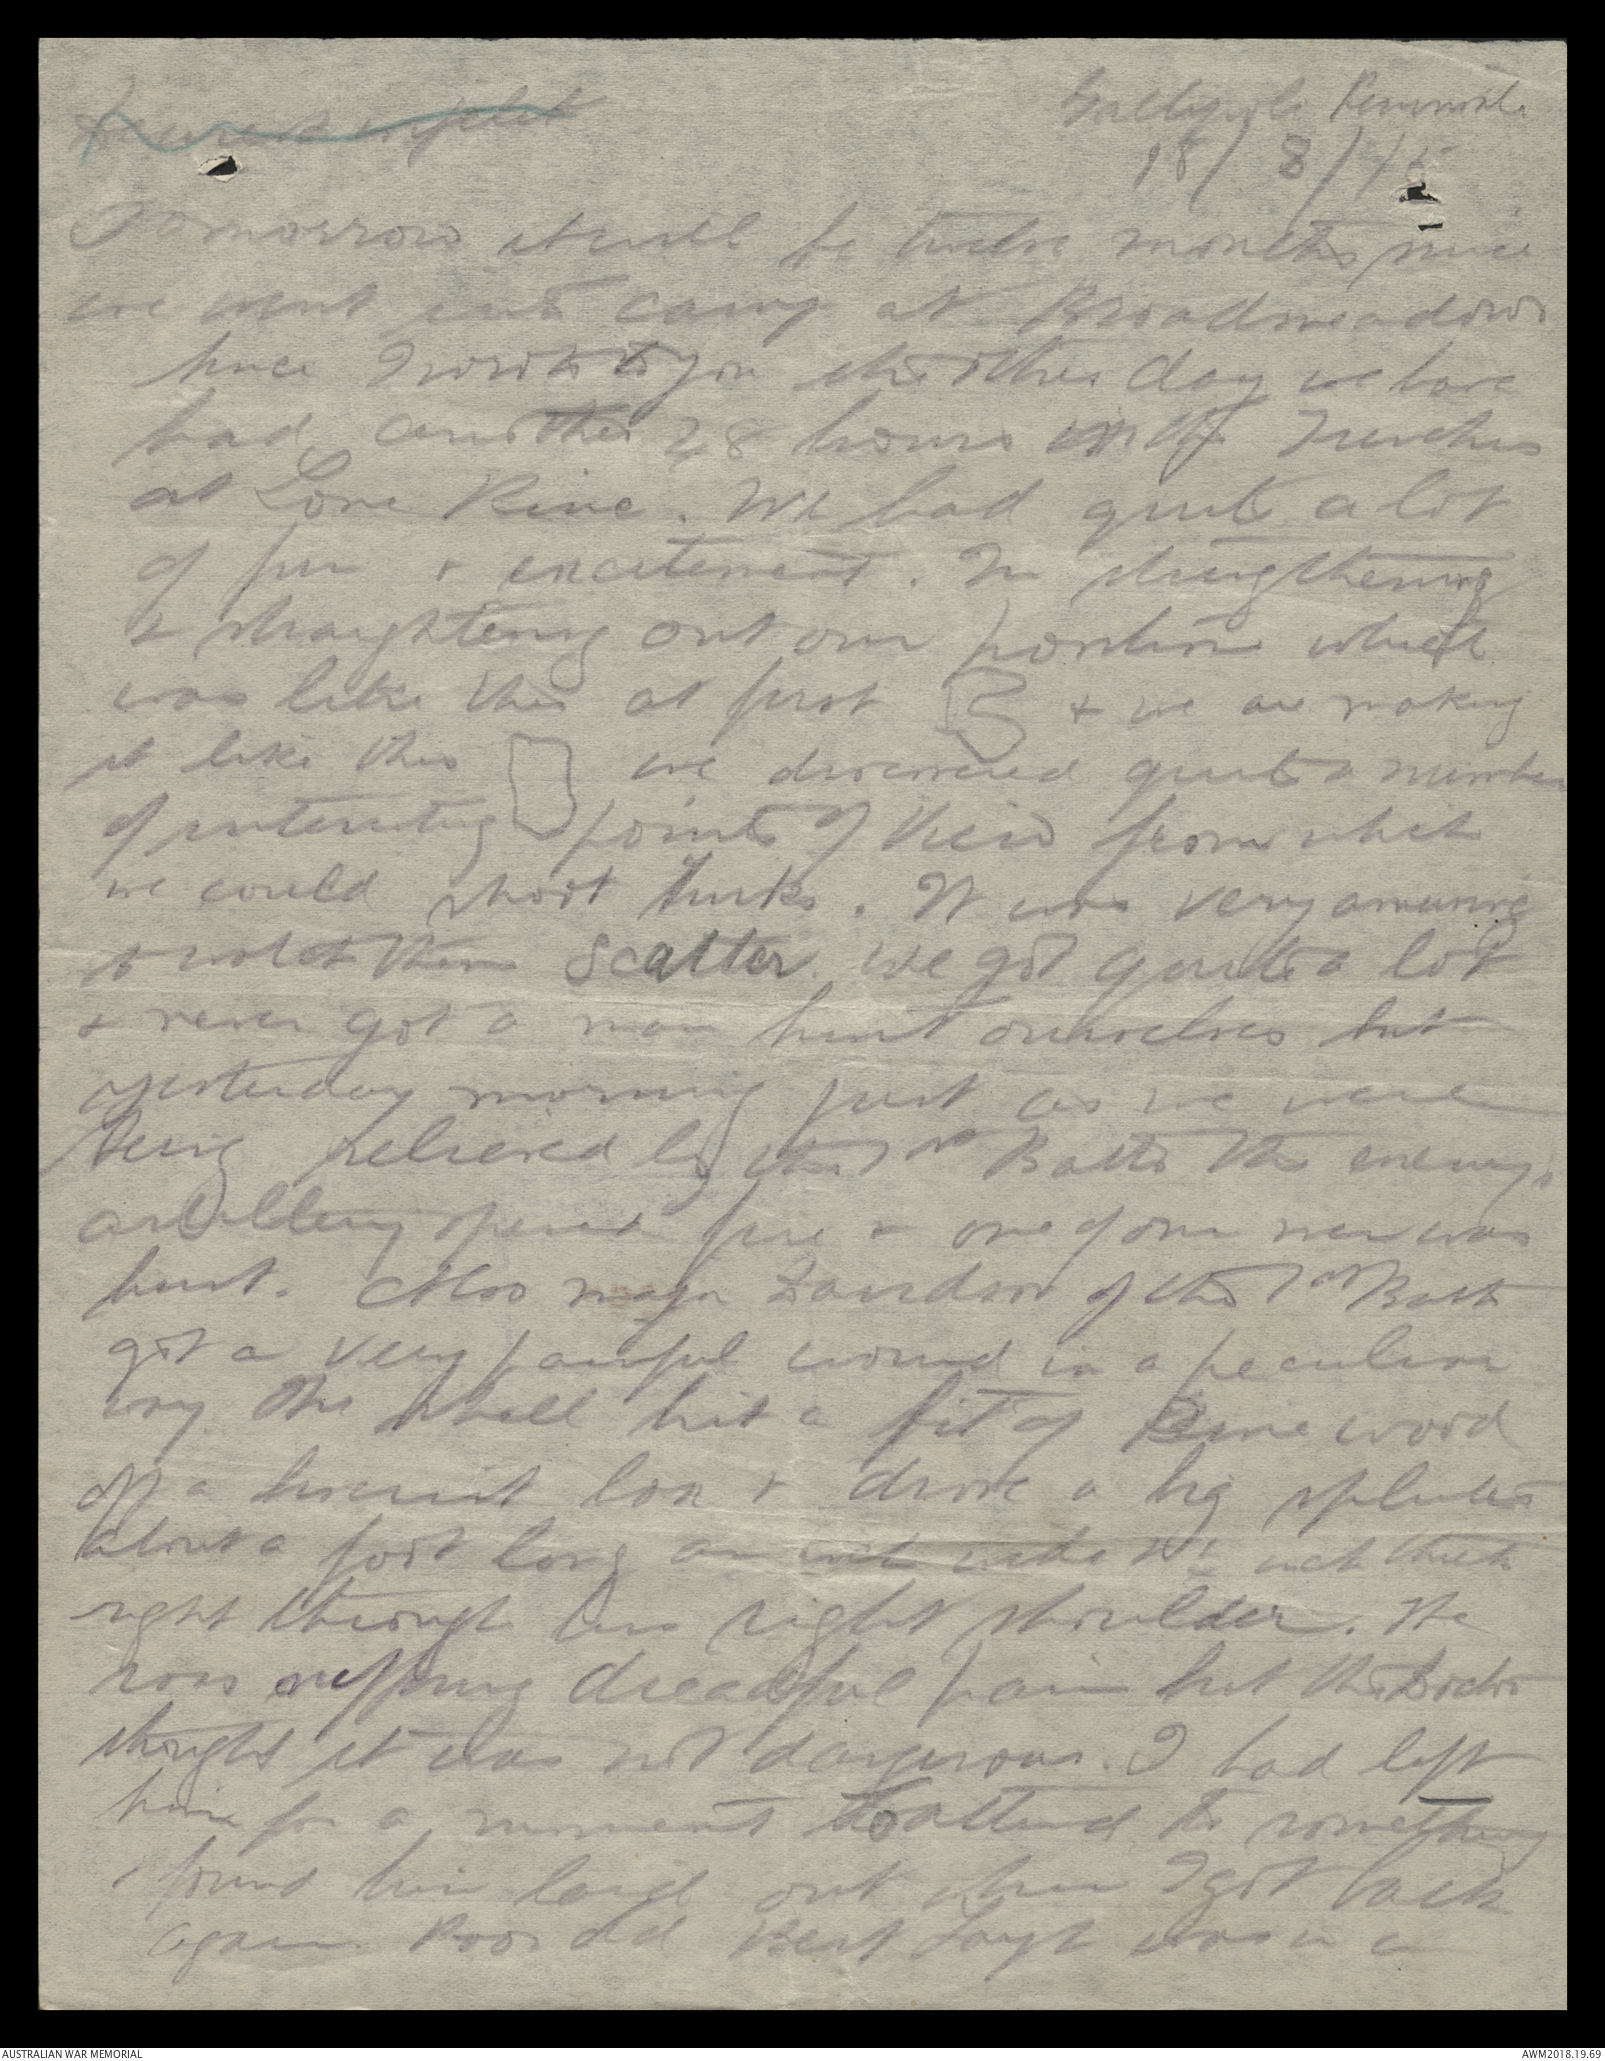 Gallipoli Peninsula
18/8/15
Tomorrow it will be twelve months since
we went into camp at Broadmeadows
Since I wrote to you the other day we have
had another 48 hours in the Trenches
at Lone Pine. We had quite a lot
of fun & excitement. In strengthening
& straightening out our position which
was like this at first & we are making
it like this we discovered quite a number
of interesting points of View from which
we could shoot Turks. It was very amusing
to watch them Scatter. We got quite a lot
& never got a man hurt ourselves but
yesterday morning just as we were
being relieved by the 1st Battn the enemy's
artillery opened fire & one of our men was
hurt. Also Major Davidson of the 1st Battn
got a very painful wound in a peculiar
way. The shell hit a bit of Pine wood
off a biscuit box & drove a big splinter
about a foot long an inch wide & ½ inch thick
right through his right shoulder. He
was suffering dreadful pain but the Doctor
thought it was not dangerous. I had left
him for a moment to attend to something
& found him laid out when I got back
again. Poor old Bert Layh was in a